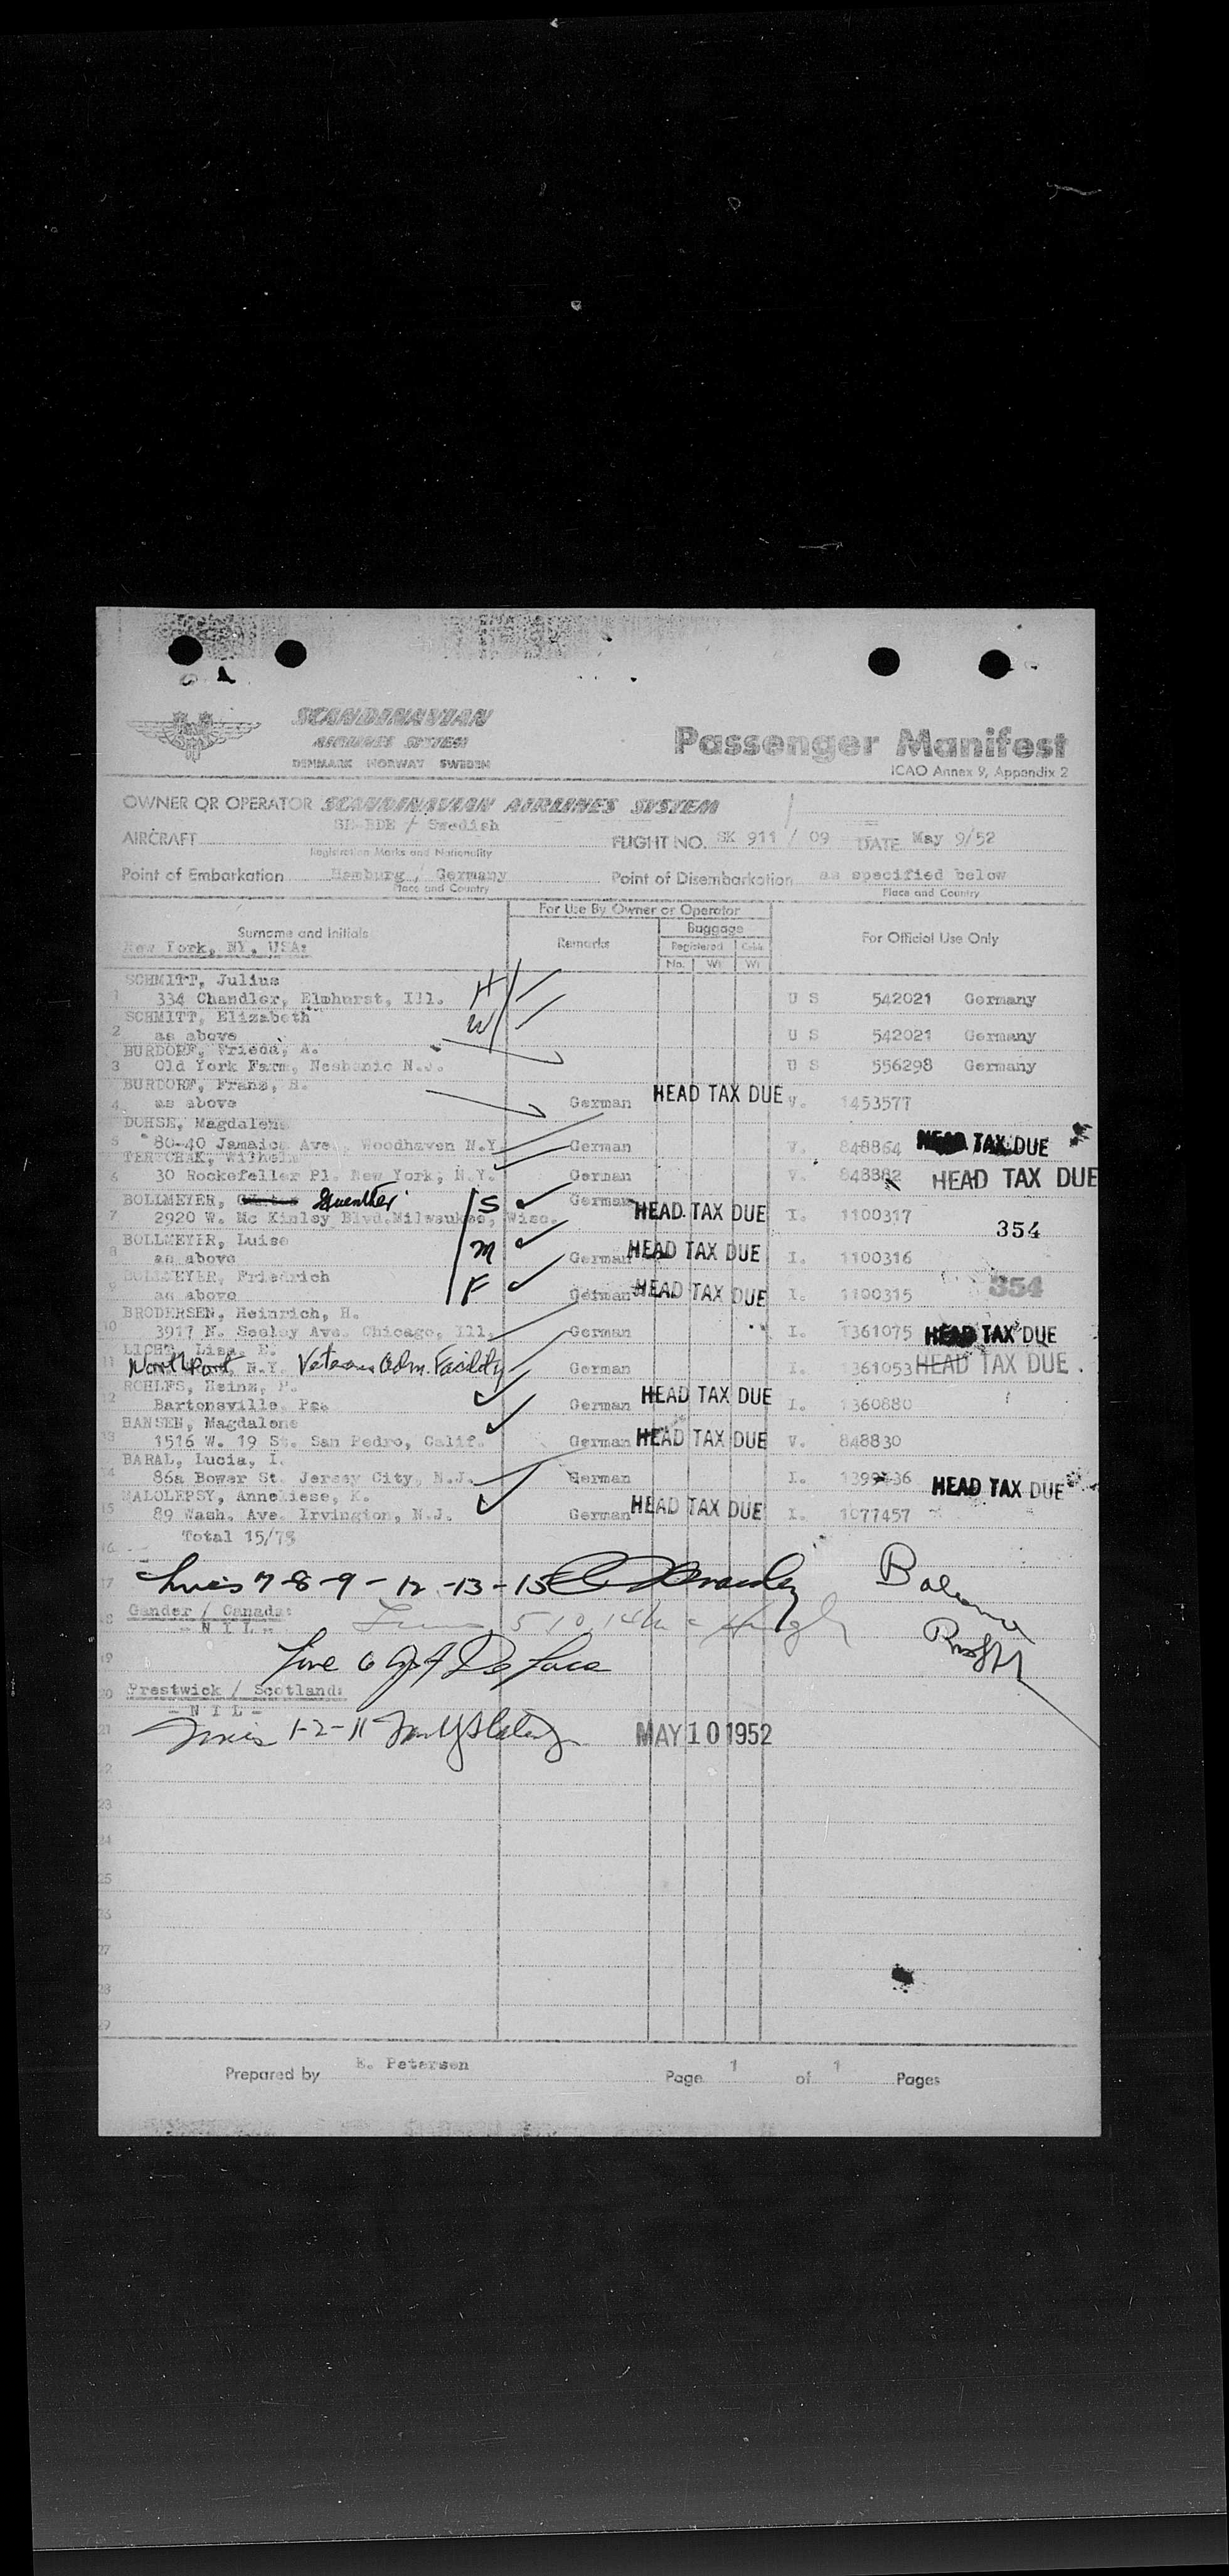 SCANDINAVIAN
AIRLINES SYSTEM
DENMARK NORWAY SWEDEN
Passenger Manifest
ICAO Annex 9, Appendix 2
OWNER OR OPERATOR SCANDINAVIAN AIRLINES SYSTEM
AIRCRAFT SE-BDE / Swedish FLIGHT NO. SK 911 / 09 DATE May 9/52
Registration Marks and Nationality
Point of Embarkation Hamburg / Germany Point of Disembarkation as specified below
Place and Country Place and Country
For Use By Owner or Operator
Surname and Initials Remarks Baggage For Official Use Only
New York, NY. USA: Registered Cabin
No. Wt Wt
SCHMITT, Julius H
1 334 Chandler, Elmhurst, Ill. U S 542021 Germany
SCHMITT, Elizabeth W
2 as above U S 542021 Germany
BURDORF, Frieda, A.
3 Old York Farm, Neshanic N.J. U S 556298 Germany
BURDORF, Franz, H. HEAD TAX DUE
4 as above German V. 1453577
DOHSE, Magdalene
5 80-40 Jamaica Ave. Woodhaven N.Y. German V. 848864 HEAD TAX DUE
Wilhelm
6 30 Rockefeller Pl. New York, N.Y. German V. 848882 HEAD TAX DUE
BOLLMEYER, Guenther S German
7 2920 W. Mc Kinley Blvd. Milwaukee, Wisc. HEAD TAX DUE I. 1100317 354
BOLLMEYER, Luise M
8 as above German HEAD TAX DUE I. 1100316
BOLLMEYER, Friedrich F 354
9 as above German HEAD TAX DUE I. 1100315
BRODERSEN, Heinrich, H.
10 3917 N. Seeley Ave. Chicago, Ill. German I. 1361075 HEAD TAX DUE
LICHT, Lisa, E.
11 Northport, N.Y. Veterans Adm. Facility German I. 361053 HEAD TAX DUE
ROHLFS, Heinz, P.
12 Bartonsville, Pa. German HEAD TAX DUE I. 1360880
HANSEN, Magdalene
13 1516 W. 19 St. San Pedro, Calif. German HEAD TAX DUE V. 848830
BARAL, Lucia, I.
14 86a Bower St. Jersey City, N.J. German I. HEAD TAX DUE
MALOLEPSY, Anneliese, K.
15 89 Wash. Ave. Irvington, N.J. German HEAD TAX DUE I. 1077457
Total 15/75
16
17 Lines 7-8-9-12-13-15
18 Gander / Canada:
- N I L -
19 Line 6
20 Prestwick / Scotland:
- N I L -
21 Lines 1-2-11 MAY 10 1952
22
23
24
25
26
27
28
29
Prepared by E. Petersen Page 1 of 1 Pages